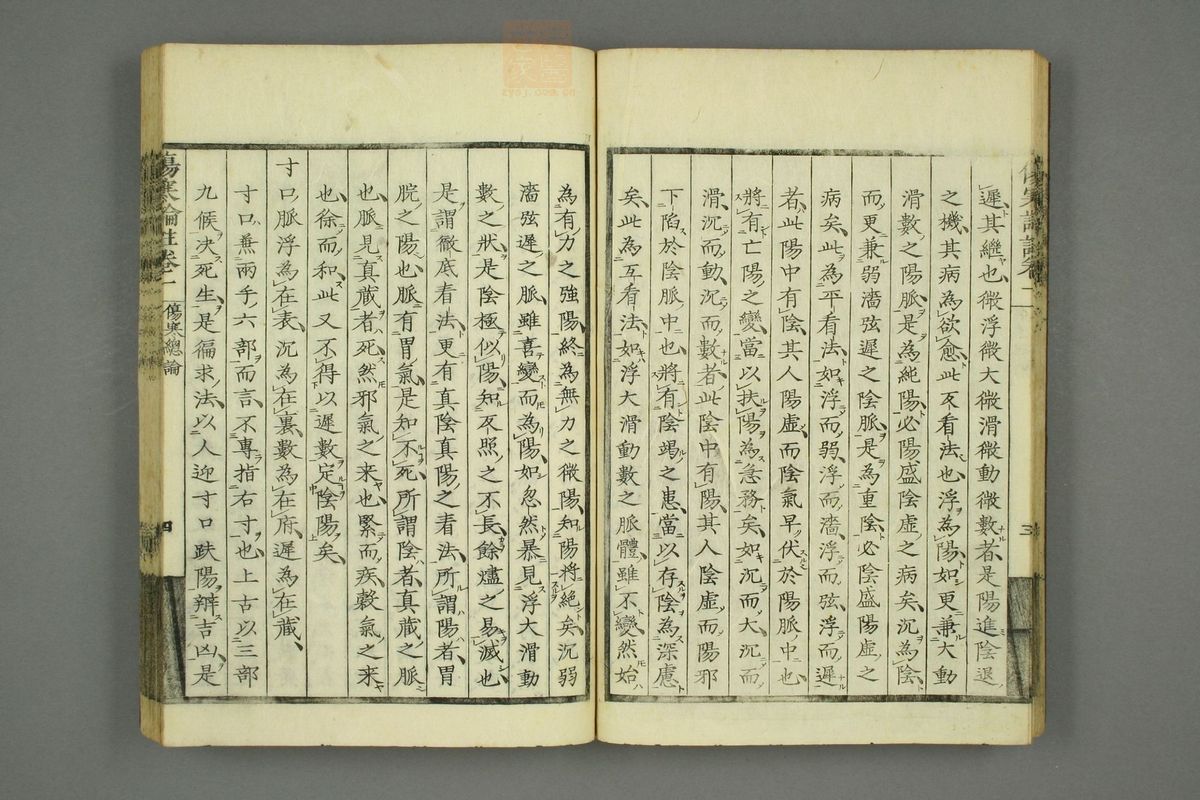 遲其繼也微浮微大微滑微動微數者是陽進陰退
之機其病為欲愈此互看法也浮為陽如更兼大動
滑數之陽脈是為純陽必陽盛陰虛之病矣沉為陰
而更兼弱濇弦遲之陰脈是為重陰必陰盛陽虛之
病矣此為平看法如浮而弱浮而濇浮而弦浮而遲
者此陽中有陰其人陽虛而陰氣早伏於陽脈中也
將有亡陽之變當以扶陽為急務矣如沉而大沉而
滑沉而動沉而數者此陰中有陽其人陰虛而陽邪
下陷於陰脈中也將有陰竭之患當以存陰為深慮
矣此為互看法如浮大滑動數之脈體雖不變然始
為有力之強陽終為無力之微陽知陽將絕矣沉弱
濇弦遲之脈雖喜變而為陽如忽然暴見浮大滑動
數之狀是陰極似陽知反照之不長餘燼之易滅也
是謂徹底看法更有真陰真陽之看法所謂陽者胃
脘之陽也脈有胃氣是知不死所謂陰者真藏之脈
也脈見真藏者死然邪氣之来也緊而疾穀氣之来
也徐而和此又不得以遲數定陰陽矣
寸口脈浮為在表沉為在裏數為在府遲為在藏
寸口兼兩手六部而言不專指右寸也上古以三部
九候決死生是徧求法以人迎寸口趺陽辨吉凶是
傷寒論註卷一
傷寒總論
四
三